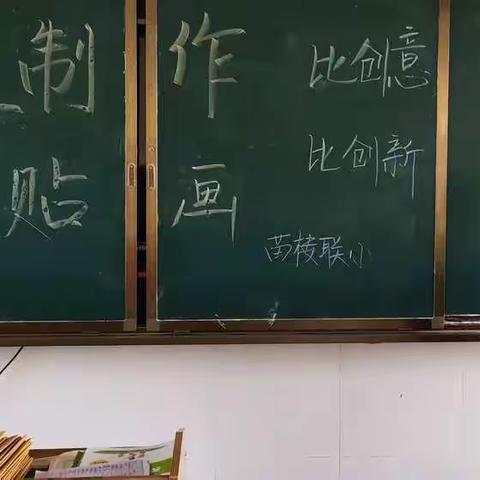 制作
贴画
比创意
比创新
苗楼联小